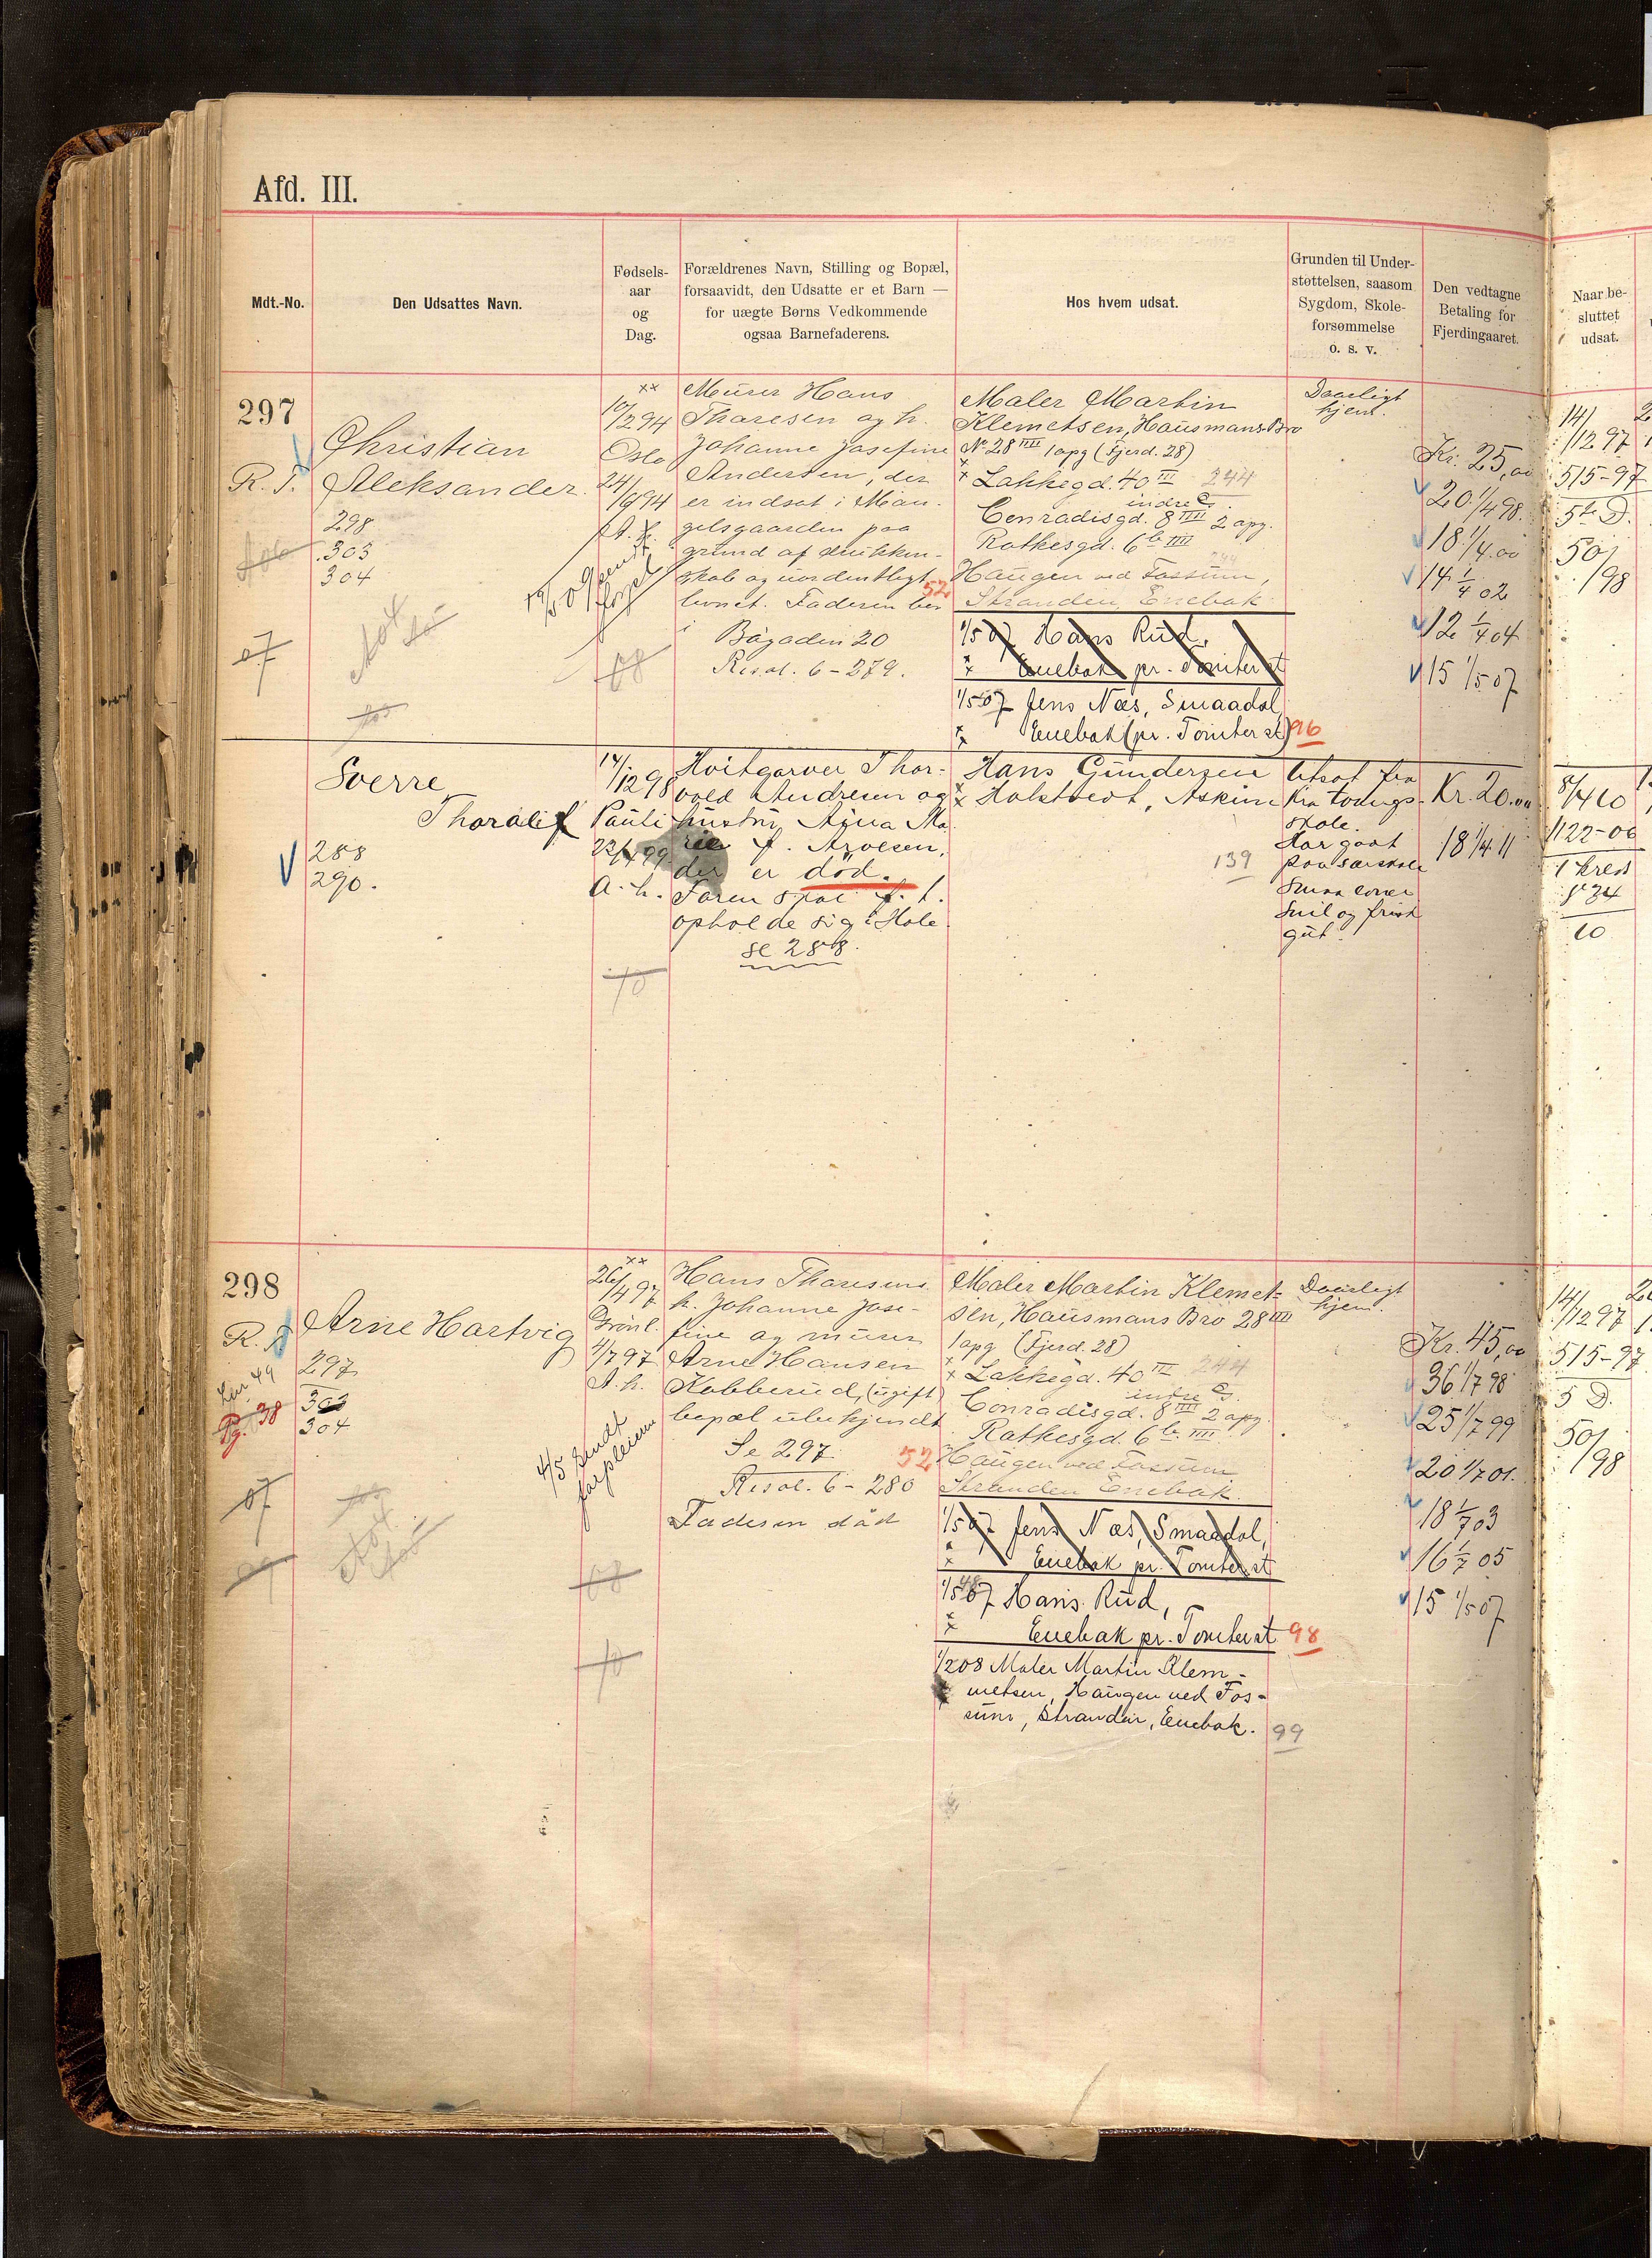 Afd. III.
Mdt.-No.
Den Udsattes Navn.
Fødsels-
aar
og
Dag.
Forældrenes Navn, Stilling og Bopæl,
forsaavidt, den Udsatte er et Barn —
for uægte Børns Vedkommende
ogsaa Barnefaderens.
Hos hvem udsat.
Grunden til Under-
støttelsen, saasom
Sygdom, Skole-
forsømmelse
o. s. v.
Den vedtagne
Betaling for
Fjerdingaaret.
Naar be-
sluttet
udsat.
297
R. T.
Christian
Aleksander.
298
303
304
07
Oslo
24/
Murer Hans
Tharesen og h.
Johanne Josefine
Andersen, der
er indsat i Man-
gelsgaarden paa
grund af drukken-
skab og uordentligt
levnet. Faderen bor
i Bøgadin 20
Resol. 6 - 279.
08
Maler Martin
Klemetsen, Hausmans Bro
No 28 IIII 1 opg (Fjerd. 28)
Lakkegd. 40 III 244
indre
Conradisgd. 8 IIII 2 opg.
Rathkesgd. 6 b IIII
Haugen ved Fossum,
52 Stranden, Enebak
1/5 07 Hans Rud,
Enebak pr. Tomter st
1/5 07 Jens Næs, Smaadal,
Enebak (pr. Tomter st) 96
Daarligt
hjem.
Kr. 25,00
20 1/4 98.
18 1/4 00
14 1/4 02
12 1/4 04
15 1/5 07
14/
/12 97
515-97
5te D.
50/
/98
Sverre
Thoralif
288
290.
14/
/12 98
Pauli
23/4 99
a. h.
Hvitgarver Thor-
vold Andresen og
hustru Anna Ma
rie f. Arvesen,
der er død.
Faren skal f. t.
opholde sig i Hole
se 288.
10
Hans Gundersen
Holstvedt, Askim
139
Utsat fra
skole.
Har gaat
paa særskole
Snil og frisk
gut.
Kr. 20.00
18 1/4 11
8/4 10
1122-06
1 kreds
§ 34
10
298
R. T.
Arne Hartvig
297
303
304
Pg. 38
07
26/4 97
Grønl.
4/7 97
A. h.
4/5 sendt
Hans Tharesens
h. Johanne Jose-
fine og murer
Arne Hansen
Kobberud, (ugift)
bopæl ubekjendt
Se 297
Resol. 6 - 280
Faderen død
08
10
Maler Martin Klemet-
sen, Hausmans Bro 28 IIII
1 opg (Fjerd. 28)
Lakkegd. 40 III 244
indre
Conradisgd. 8 IIII 2 opg.
Rathkesgd. 6 b IIII
52 Haugen ved Fossum
Stranden Enebak.
1/5 07 Jens Næs, Smaadal,
Enebak pr. Tomter st
1/5 07 Hans Rud,
Enebak pr. Tomter st 98
1/2 08 Maler Martin Klem-
metsen, Haugen ved Fos-
sum, Stranden, Enebak. 99
Daarligt
hjem.
Kr. 45,00
36 1/7 98
25 1/7 99
20 1/7 01.
18 1/7 03
16 1/7 05
15 1/5 07
14/
/12 97
515-97
5 D.
50/
/98